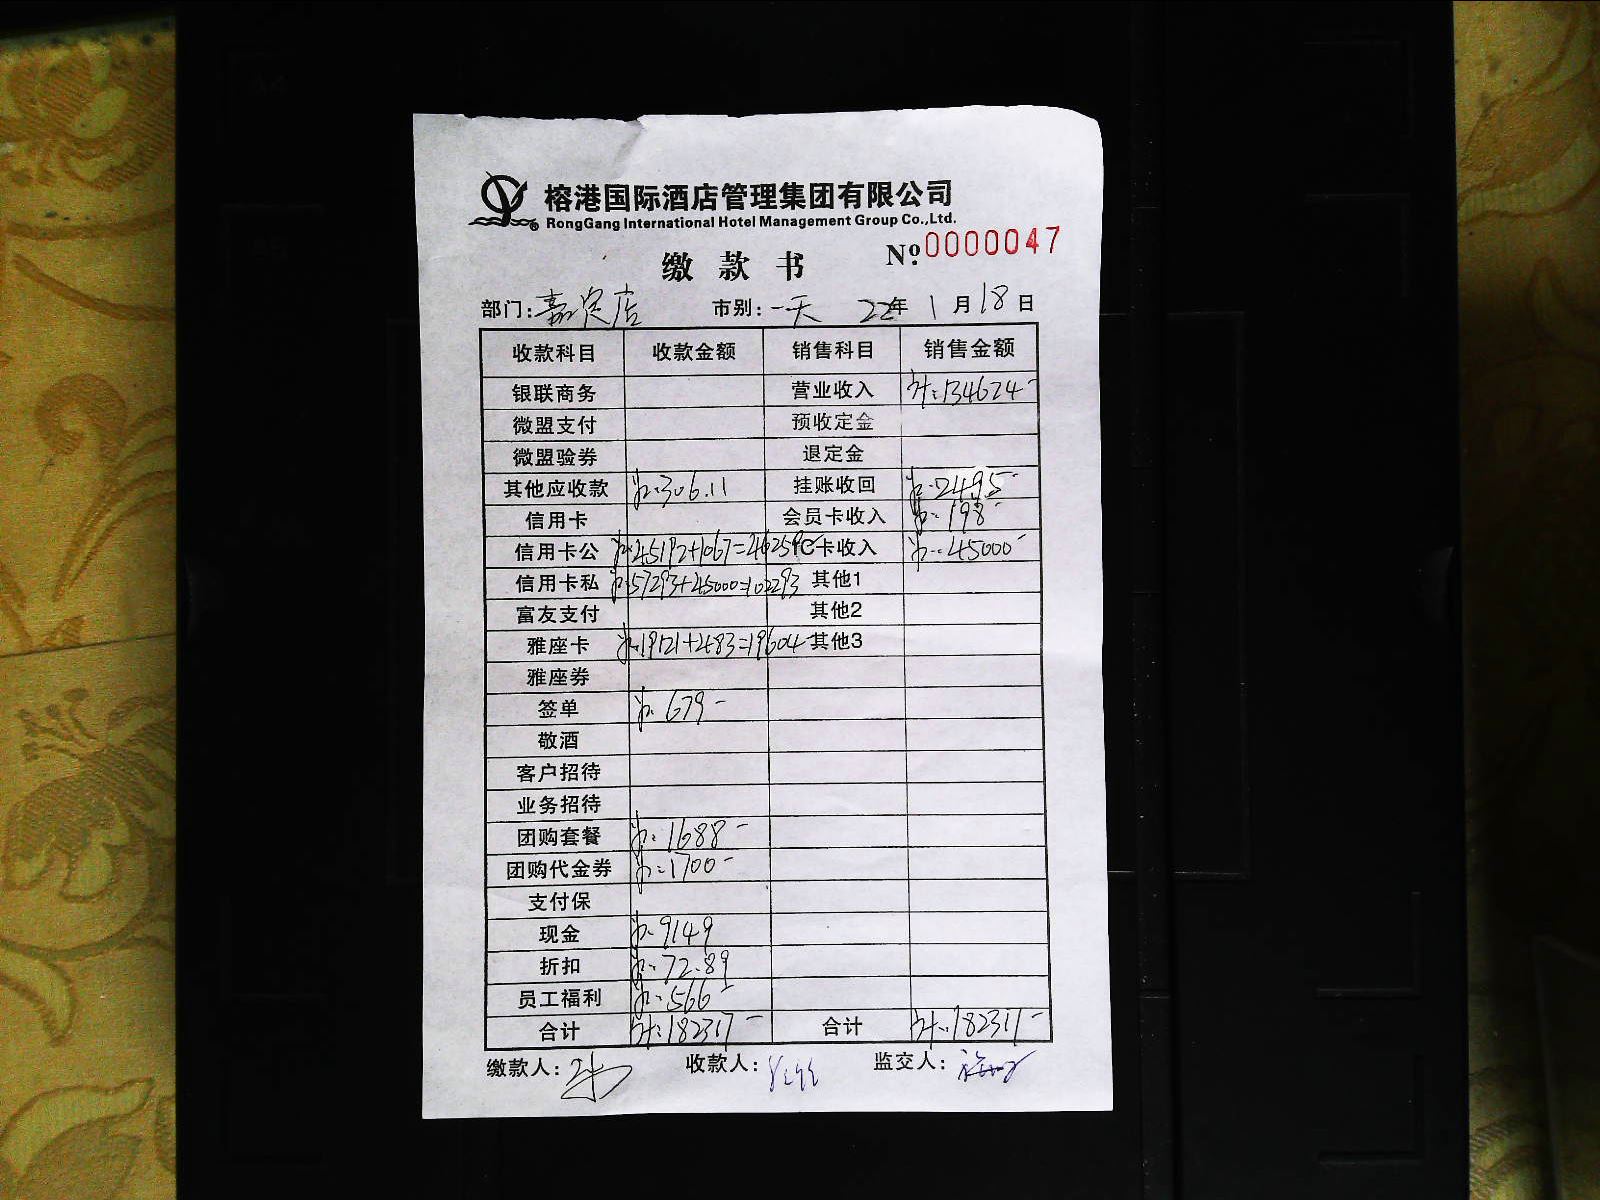 榕港国际酒店管理集团有限公司
RongGang International Hotel Management Group Co.,Ltd.
缴款书 Nº 0000047
部门: 嘉定店 市别: 一天 22年 1月18日
收款科目 收款金额 销售科目 销售金额
银联商务 营业收入 134624-
微盟支付 预收定金
微盟验券 退定金
其他应收款 306.11 挂账收回 2495-
信用卡 会员卡收入 198-
信用卡公 45192+1067=46259 IC卡收入 45000-
信用卡私 57293+45000=102293 其他1
富友支付 其他2
雅座卡 19121+483=19604- 其他3
雅座券
签单 679-
敬酒
客户招待
业务招待
团购套餐 1688-
团购代金券 1700-
支付保
现金 9149
折扣 72.89
员工福利 566-
合计 182317- 合计 182317-
缴款人: 收款人: 监交人: